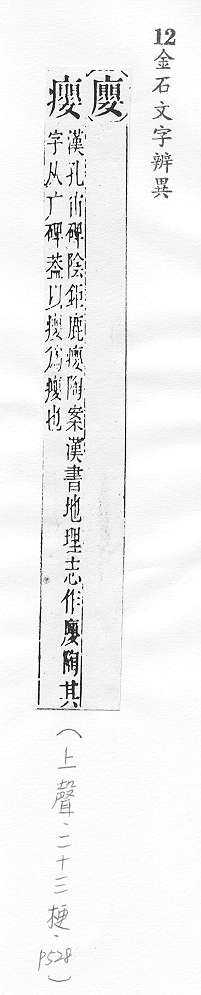 12金石文字辨異
廮
瘿漢孔宙碑陰鉅鹿瘿陶案漢書地理志作廮陶其
字从广碑葢以瘿為廮也
（上聲·二十三梗·P528）